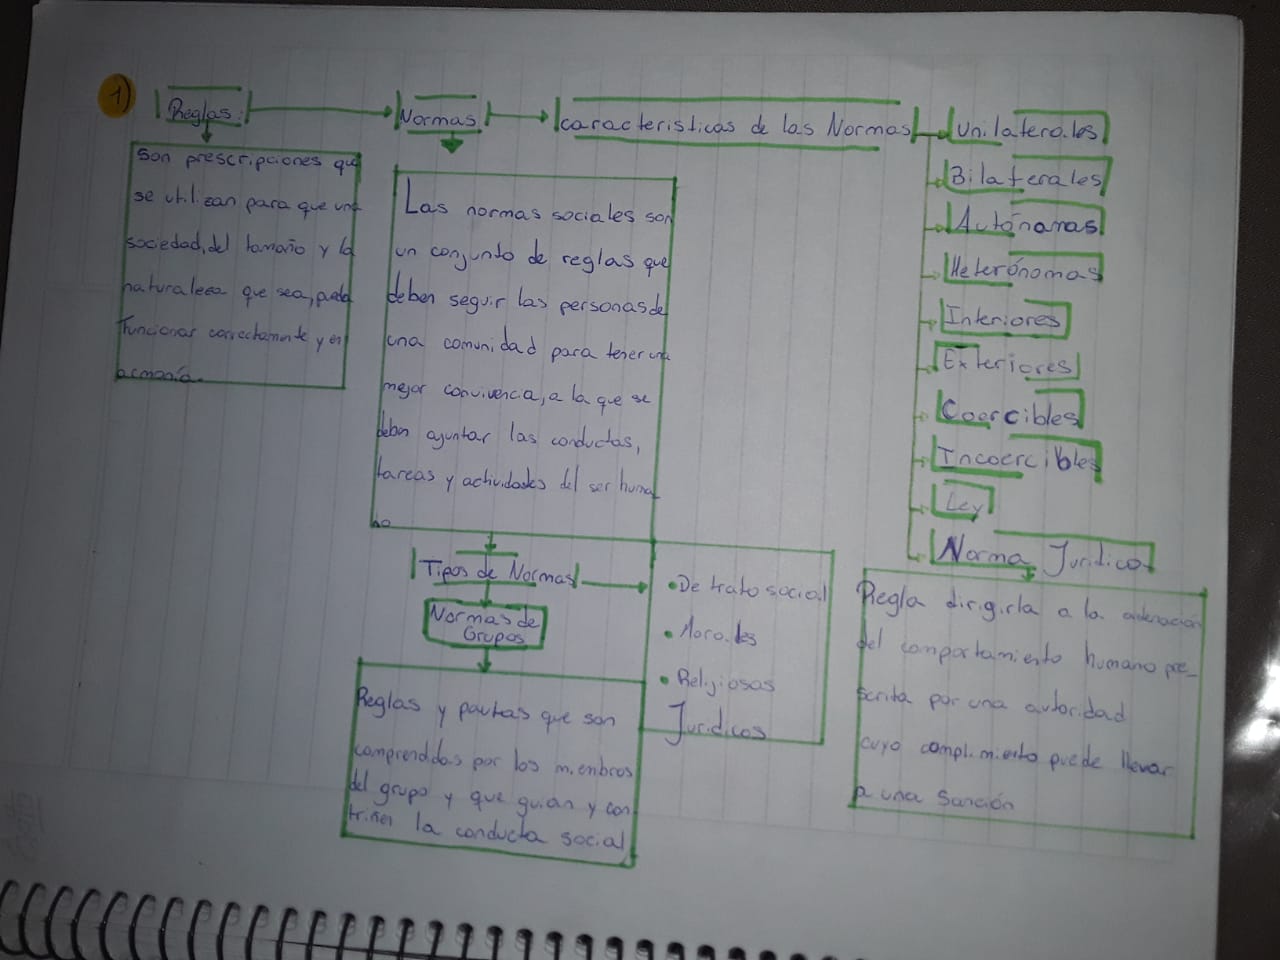 1)
Reglas:
Son prescripciones que
se utilizan para que una
sociedad, del tamaño y la
naturaleza que sea, pueda
funcionar correctamente y en
armonía.
Normas
Las normas sociales son
un conjunto de reglas que
deben seguir las personas de
una comunidad para tener una
mejor convivencia, a la que se
deben ajuntar las conductas,
tareas y actividades del ser huma
no
Tipos de Normas
Normas de
Grupos
Reglas y pautas que son
comprendidas por los miembros
del grupo y que guían y con
triñen la conducta social
• De trato social
• Morales
• Religiosas
Juridicos
caracteristicas de las Normas
Unilaterales
Bilaterales
Autónomas
Heterónomas
Interiores
Exteriores
Coercibles
Incoercibles
Ley
Norma Juridica
Regla dirigirla a la ordenación
del comportamiento humano pre_
scrita por una autoridad
cuyo complimiento puede llevar
a una Sanción